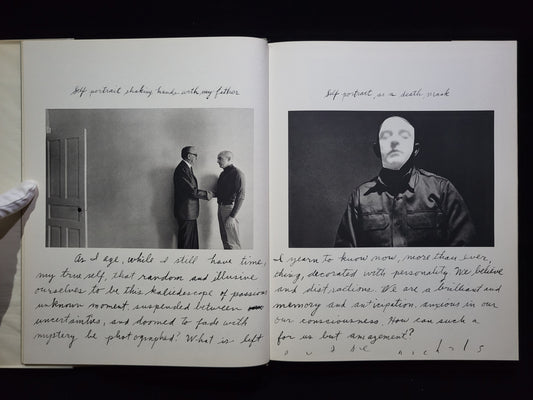 Self portrait shaking hands with my father
Self portrait, as a death mask
As I age, while I still have time, I yearn to know now, more than ever,
my true self, that random and illusive thing, decorated with personality. We believe
ourselves to be this kaleidiscope of passions and distractions. We are a brilliant and
unknown moment, suspended between memory and anticipation, anxious in our
uncertainties, and doomed to fade with our consciousness. How can such a
mystery be photographed? What is left for us but amazement?